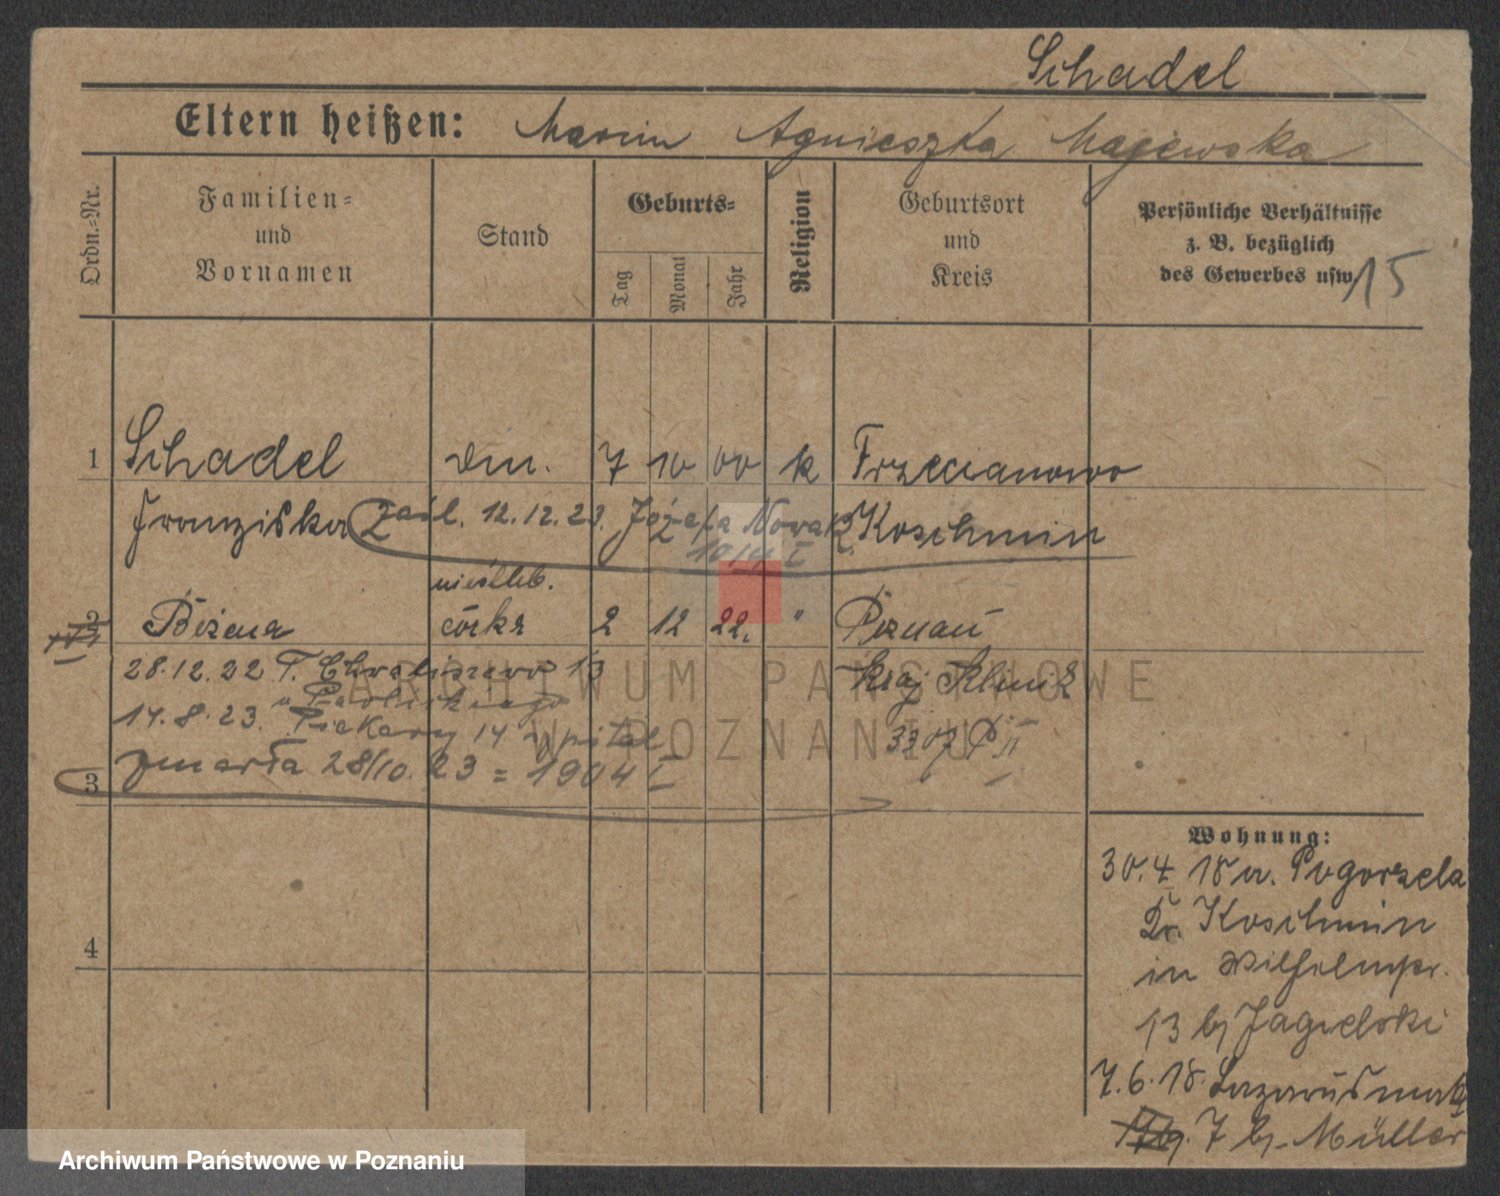 Schadel
Eltern heißen: Marcin Agnieszka Majewska
Ordn.-Nr.
Familien- und Vornamen
Stand
Geburts-
Tag
Monat
Jahr
Religion
Geburtsort und Kreis
Persönliche Verhältnisse
z. B. bezüglich
des Gewerbes usw.
15
1 Schadel din. 7 10 00 k Trzecianowo
Franziska zaśl. 12.12.23. Józefa Nowak Koschmin
nieślub.
2 Bożena córka 2 12 22. " Poznań
28.12.22 T. Chwaliszewo 13 Kraj Klinik
14.8.23. Piekary 14 szpital
3 zmarła 28/10.23 = 1904 I
4
Wohnung:
30.4.18 v. Pogorzela
Kr. Koschmin
in Wilhelmpr.
13 bj Jagielski
7.6.18. Lazarusmark
7 bj. Müller
ARCHIWUM PAŃSTWOWE
W POZNANIU
Archiwum Państwowe w Poznaniu